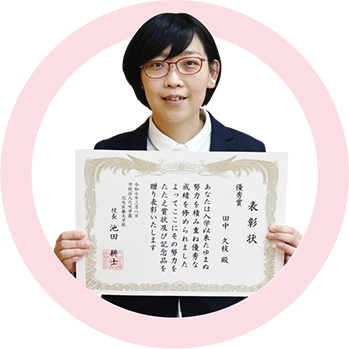 表彰状
優秀賞
田中 久枝 殿
あなたは入学以来たゆまぬ
努力を積み重ね優秀な
成績を修められました
よってここにその努力を
たたえ賞状及び記念品を
贈り表彰いたします
令和七年三月八日
校長 池田